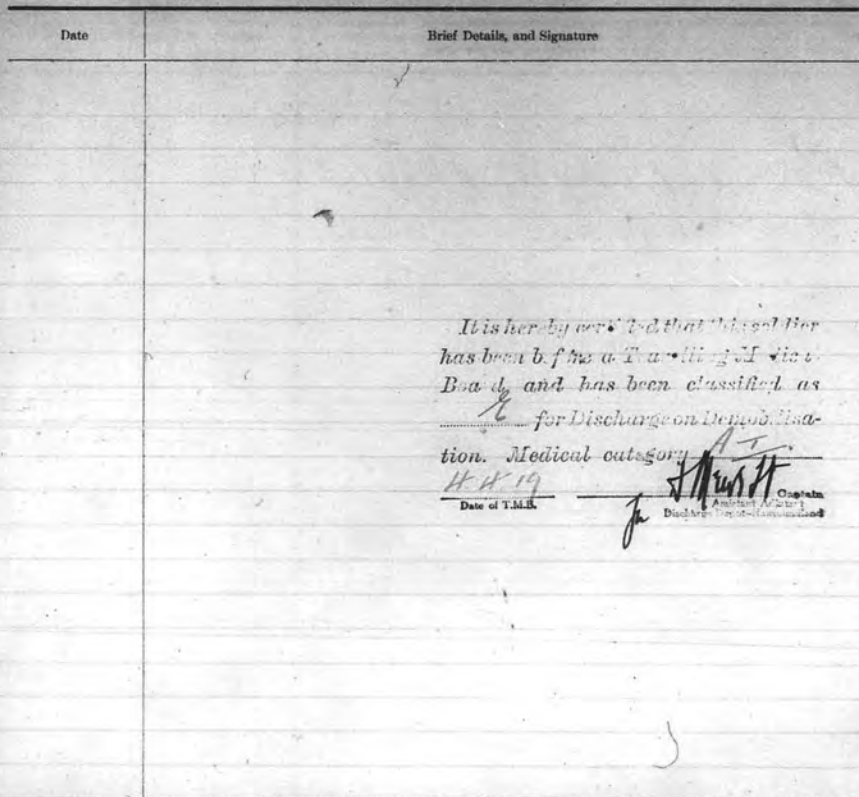 Date
Brief Details, and Signature
It is hereby certified that this soldier
has been before a Travelling Medical
Board, and has been classified as
E for Discharge on Demobilisa-
tion. Medical category A I
4 4 19
Date of T.M.B.
Captain
for
Assistant Adjutant
Discharge Depot—Newfoundland